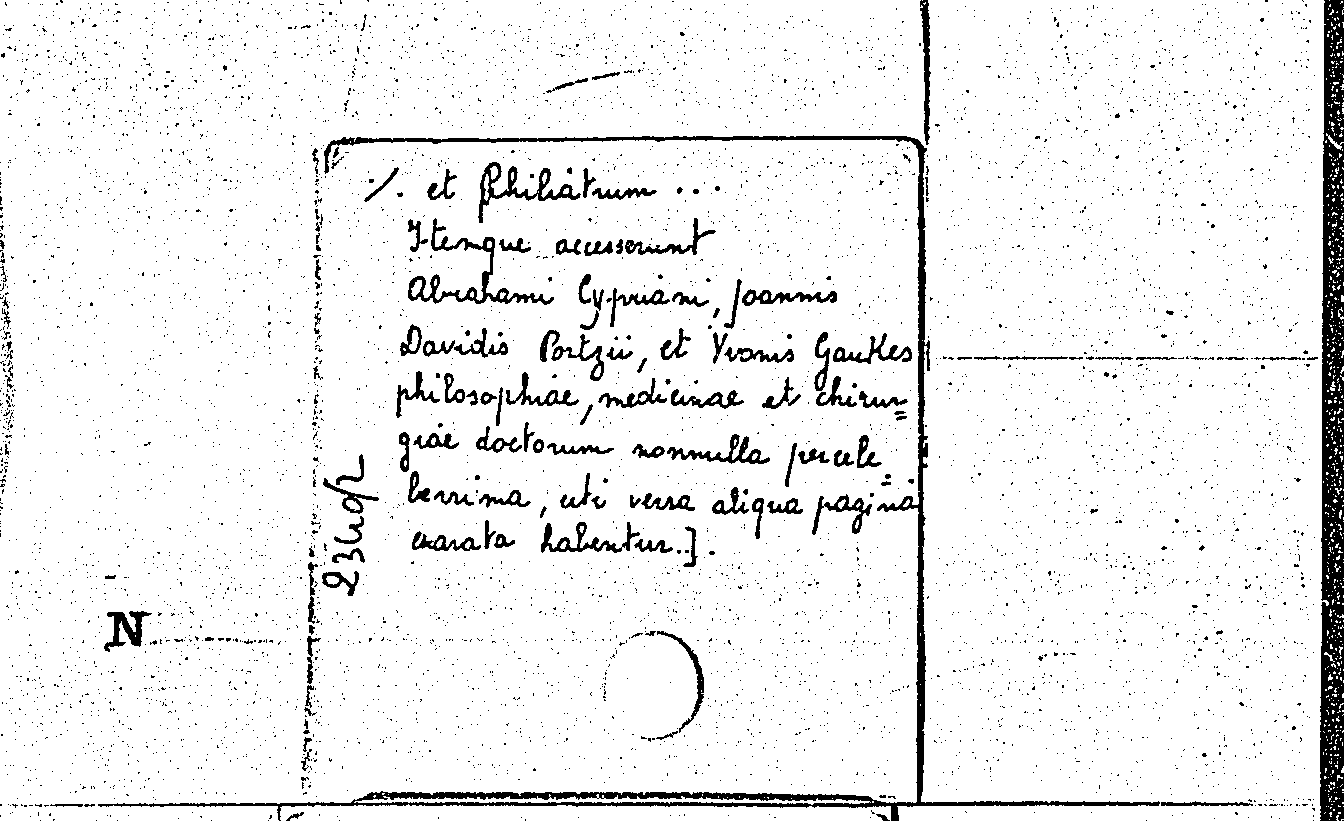 ./. et Philiatrum ...
Itemque accesserunt
Abrahami Cypriani, Joannis
Davidis Portzii, et Yvonis Gaukes
philosophiae, medicinae et chirur=
giae doctorum nonnulla percele=
berrima, uti versa aliqua pagina
exarata habentur..].
N